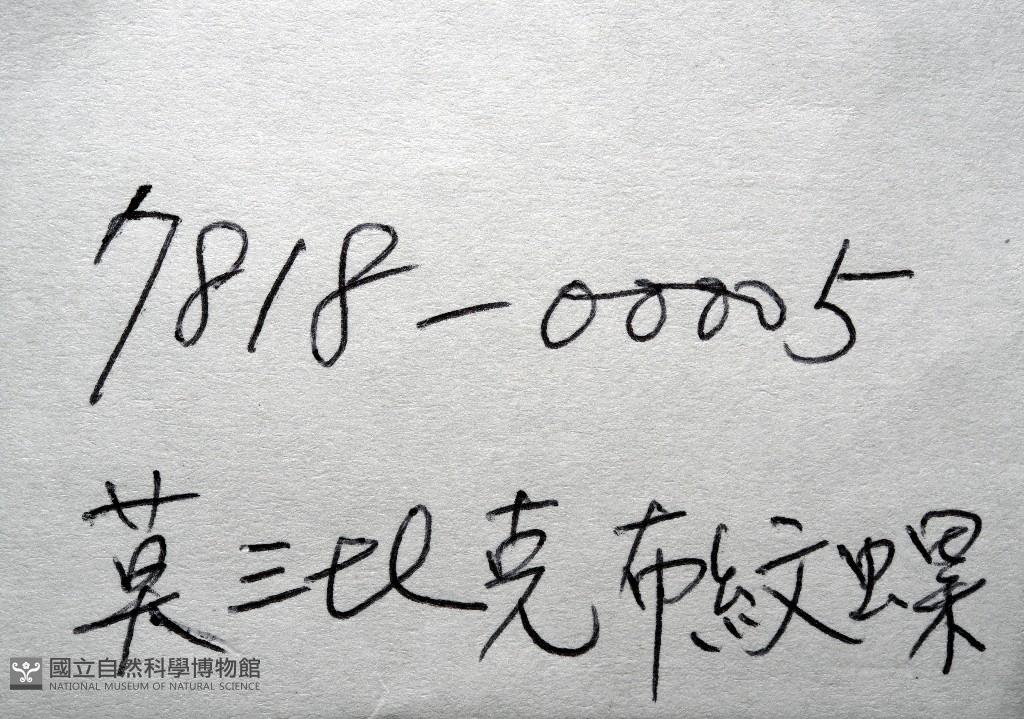 7818-00005
莫三比克布紋螺
國立自然科學博物館
NATIONAL MUSEUM OF NATURAL SCIENCE